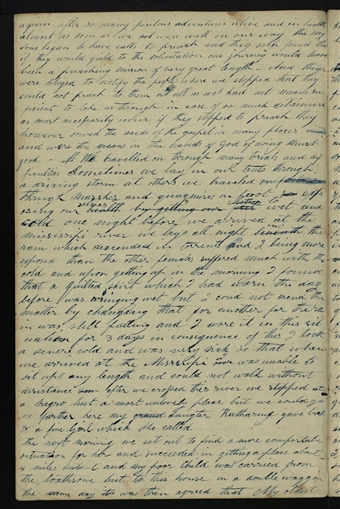 again after so many perilous adventures alive and in health
almost as soon as we got were well on our way the my
sons began to have calls to preach and they soon found that
if they would yield to the solicitation our journey would have
been a preaching mission of very great length and they
were obliged to notify the people where we stopped that they
could not preach to them at all as we had not means suf
ficient to take us through in case of so much detainment
as must necessarily occur if they stopped to preach they
however sowed the seeds of the gospel in many places
and were the means in the hands of God of doing much
good. We travelled on through many trials and dif
ficulties sometimes we lay in our tents through
a driving storm at others we traveled on
through marshes and quagmires on foot exp
osing our health by getting our
cold one night before we arrived at the
Mississippi river we lay all night beneath the
rain which descended in torrents and I being more
exposed than the other females suffered much with the
cold and upon getting up in the morning I found
that a quilted skirt which I had worn the day
before was wringing wet but I could not mend the
matter by changing that for another for the ra
in was still falling and I wore it in this sit
uation for 3 days in consequence of this I took
a severe cold and was very sick so that when
we arrived at the Mississippi I was unable to
sit up any length and could not walk without
assistance after we crossed this river we stopped at
a Negro hut a most unlovely place but we could go
no farther here my grand daughter Katharine gave birth
to a fine Girl which she called
the next morning we set out to find a more comfortable
situation for her and succeeded in getting a place about
4 miles distant and my poor child was carried from
the loathsome hut to this house in a double waggon
the same day it was then agreed that My oldest